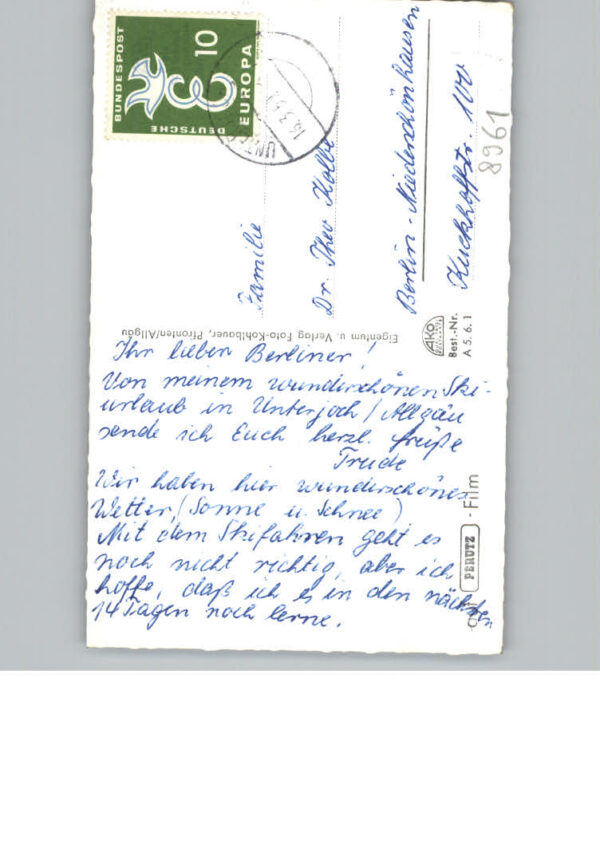 Ihr lieben Berliner!
Von meinem wunderschönen Ski-
urlaub in Unterjoch/Allgäu
sende ich Euch herzl. Grüße
Trude
Wir haben hier wunderschönes
Wetter (Sonne u. Schnee)
Mit dem Skifahren geht es
noch nicht richtig, aber ich
hoffe, daß ich es in den nächsten
14 Tagen noch lerne.
Familie
Dr. Theo Kolbe
Berlin-Niederschönhausen
Kuckhoffstr. 100
8961
DEUTSCHE
BUNDESPOST
10
EUROPA
16.3.59
Eigentum u. Verlag Foto-Kohlbauer, Pfronten/Allgäu
AKO
Best.-Nr.
A 5. 6. 1
PERUTZ -Film